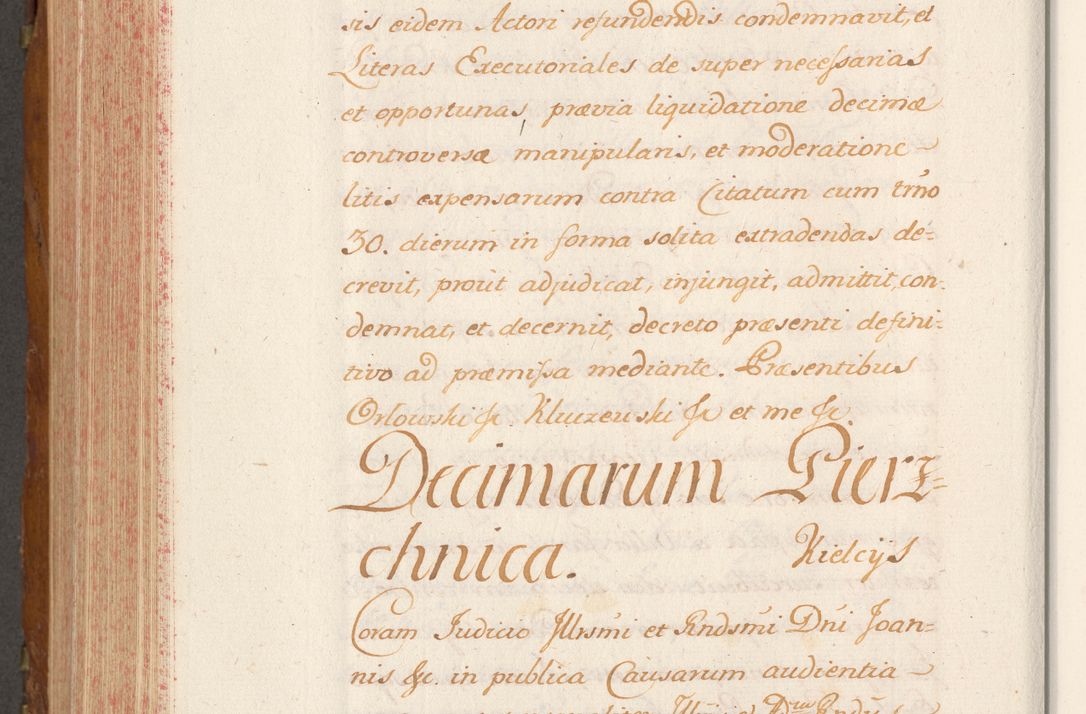 sis eidem Actori refundendis condemnavit, et
Literas Executoriales de super necessarias
et opportunas, prævia liquidatione decimæ
controversæ manipularis, et moderatione
litis expensarum contra Citatum cum trmō
30. dierum in forma solita extradendas de=
crevit, prout adjudicat, injungit, admittit, con=
demnat, et decernit, decreto præsenti defini=
tivo ad præmissa mediante. Præsentibus
Orłowski &c. Kluczewski &c et me &c
Decimarum Pierz=
chnica. Kielcijs
Coram Judicio Illrsm̄i et Rndsm̄i Dn̄i Joan=
nis &c. in publica Causarum audientia